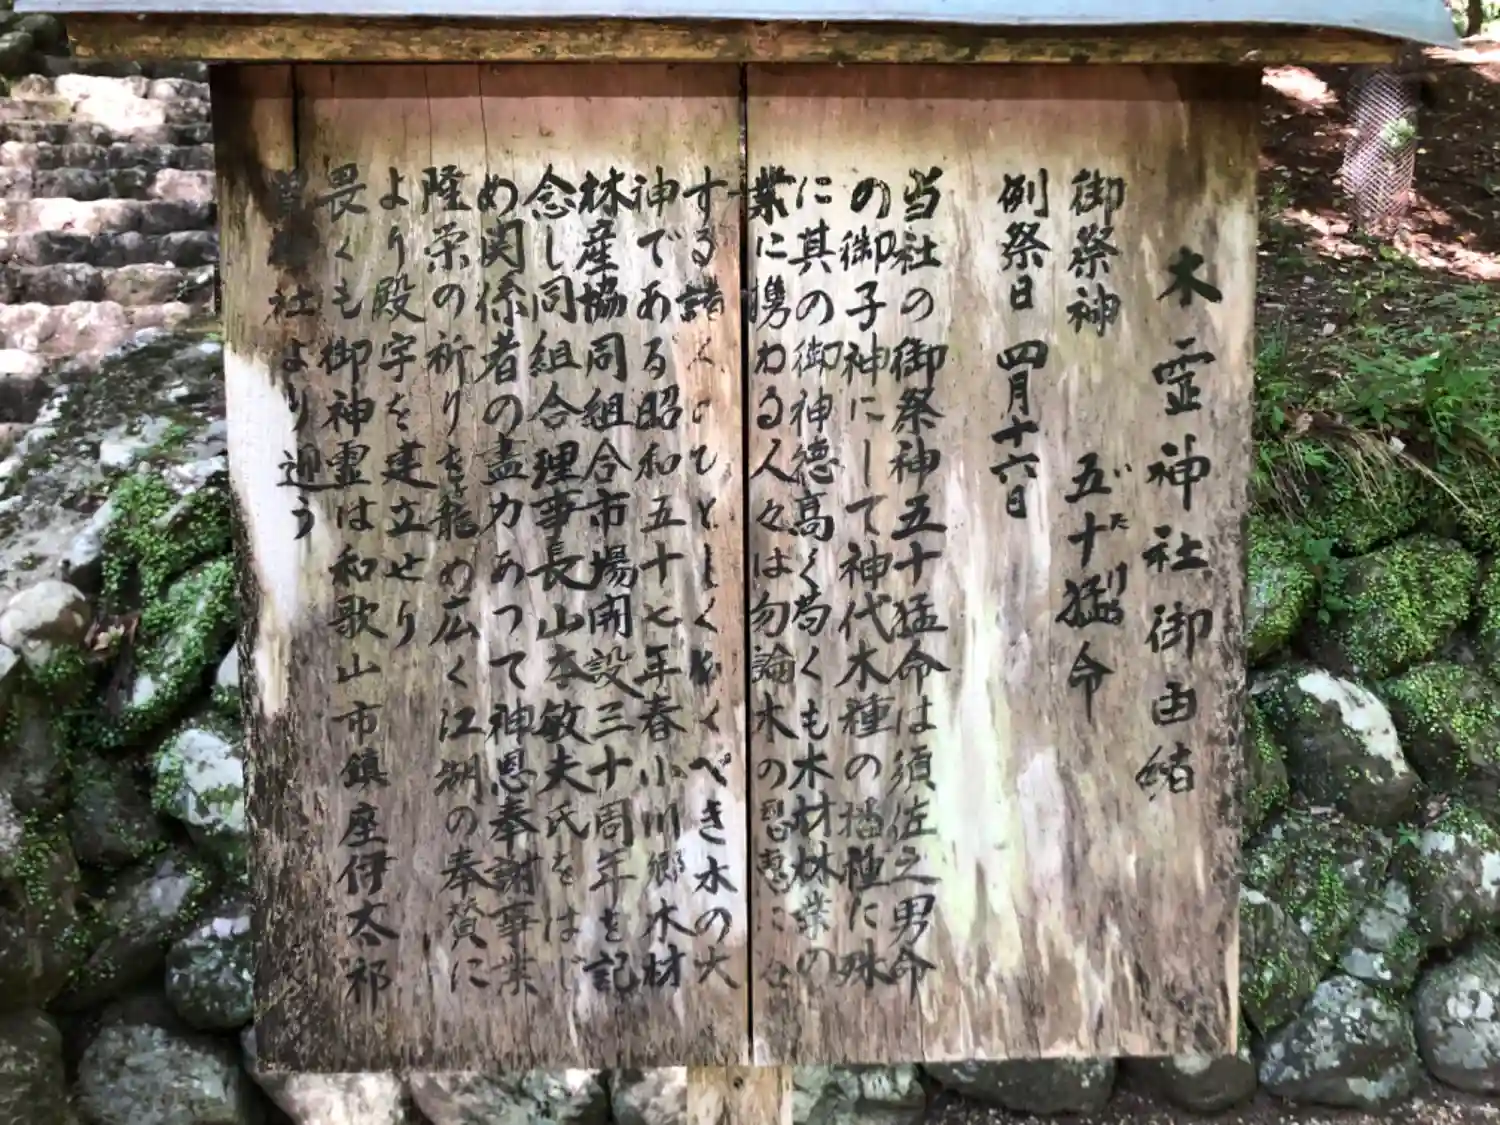 木霊神社御由緒
御祭神 五十猛命
い た ける
例祭日 四月十六日
当社の御祭神五十猛命は須佐之男命
の御子神にして神代木種の播種に殊
に其の御神徳高く尚くも木材林業の
業に携わる人々は勿論木の
する べき木の大
神である昭和五十七年春小川郷木材
林産協同組合市場開設三十周年を記
念し同組合理事長山本敏夫氏をはじ
め関係者の盡力あつて神恩奉謝事業
隆栄の祈りを 広く江湖の奉賛に
より殿宇を建立せり
畏くも御神霊は和歌山市鎮座伊太祁
社より迎う